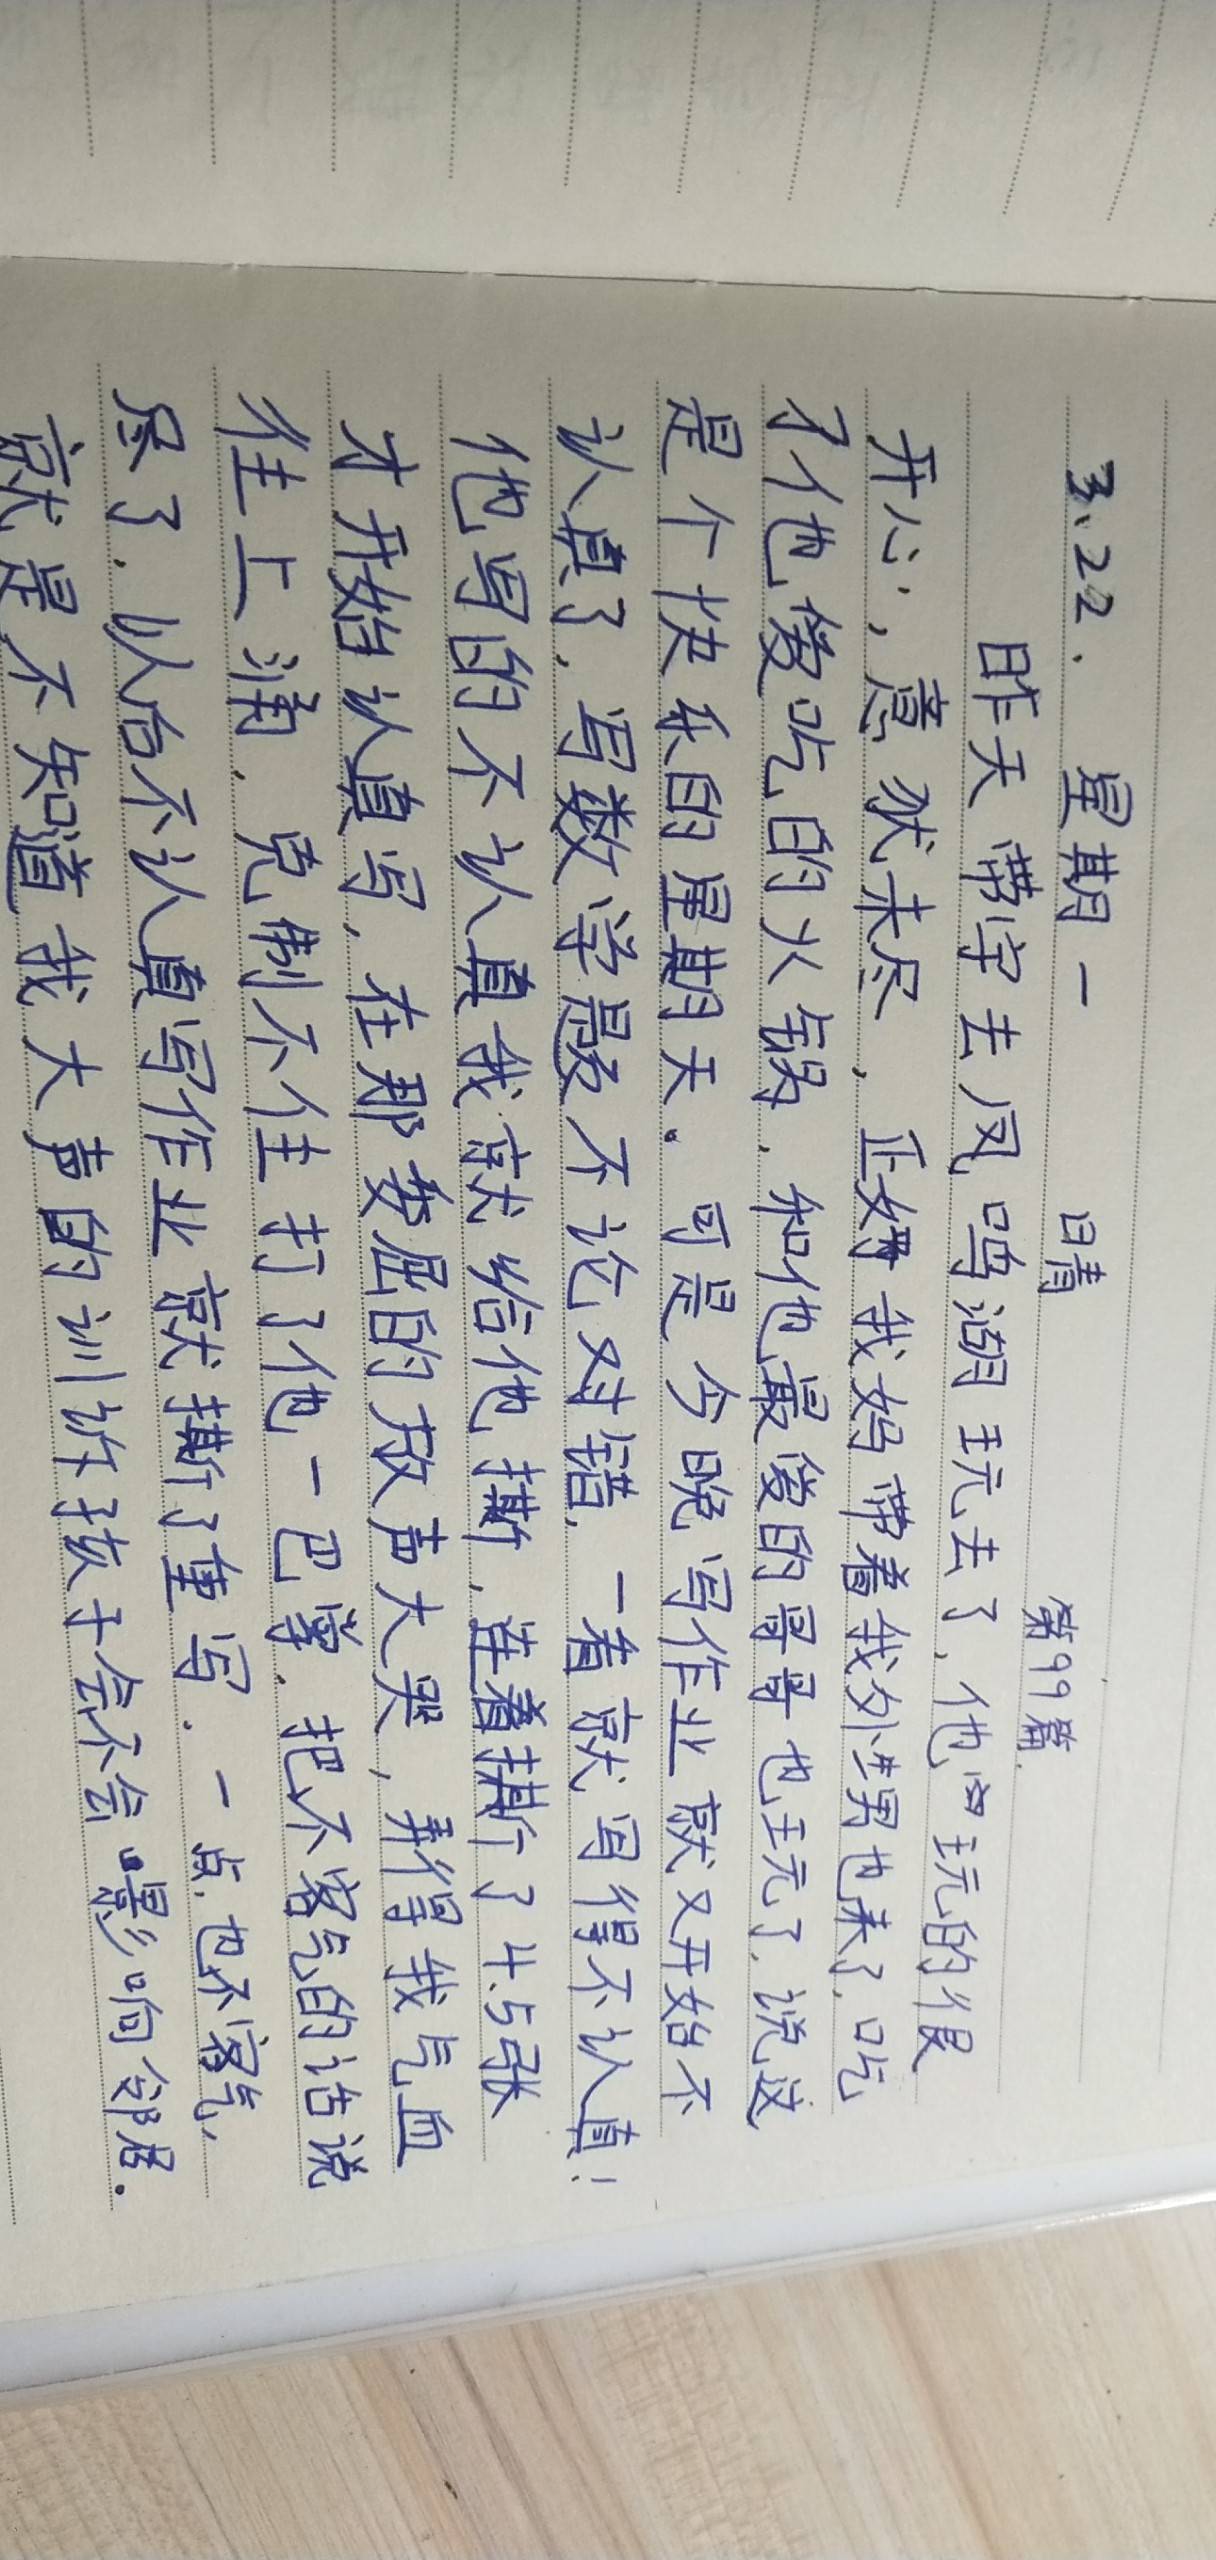 3.22. 星期一 晴 第99篇.
昨天带宇去凤鸣湖玩去了,他玩的很
开心,意犹未尽,正好我妈带着我外甥也来了,吃
了他爱吃的火锅.和他最爱的哥哥也玩了,说这
是个快乐的星期天。可是今晚写作业就又开始不
认真了,写数学题不论对错,一看就写得不认真!
他写的不认真我就给他撕,连着撕了4.5张
才开始认真写,在那委屈的放声大哭,弄得我气血
往上涌,克制不住打了他一巴掌.把不客气的话说
尽了.以后不认真写作业就撕了重写.一点也不客气,
就是不知道我大声的训斥孩子会不会影响邻居.